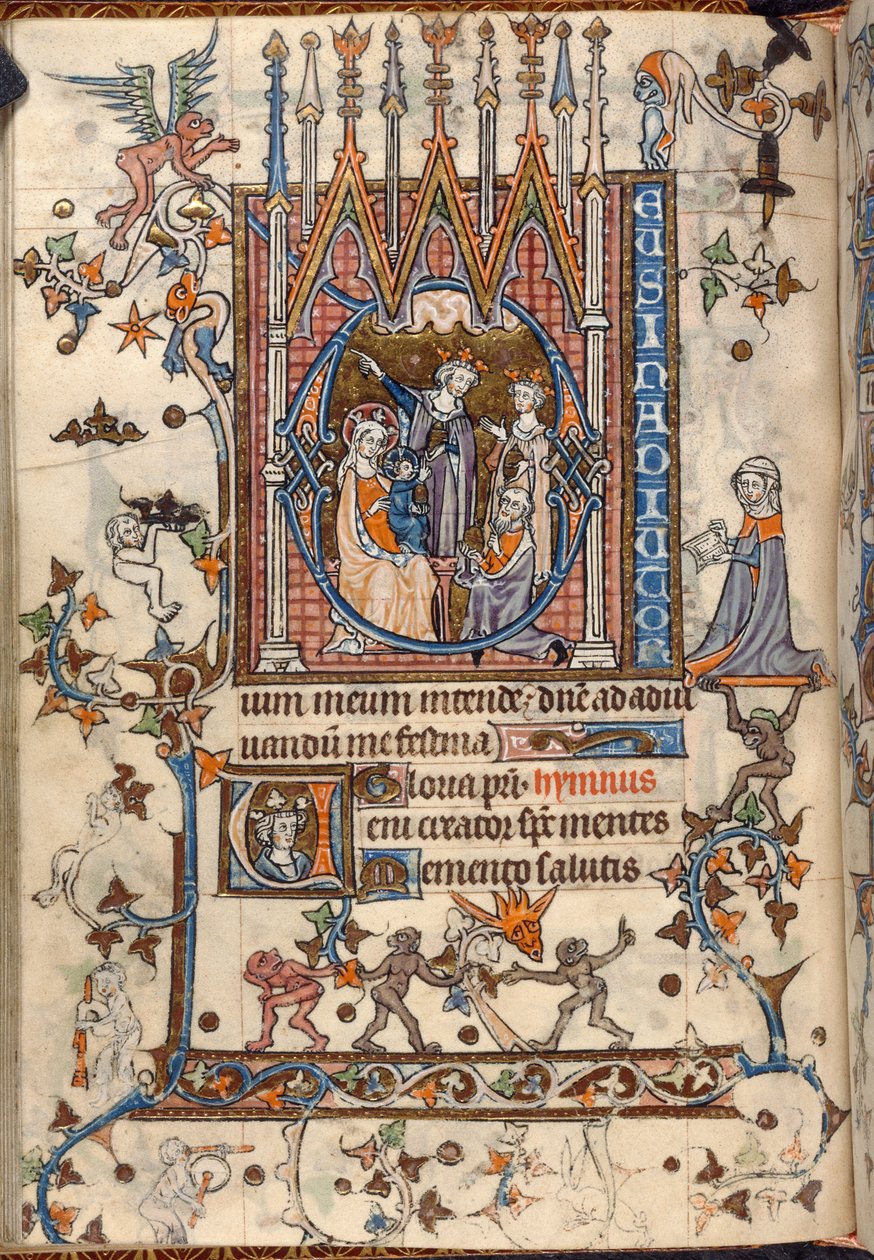 DEUSINADIUTO
rium meum intende; dn̄e ad adiu
uandū me festina
Gloria pr̄i. hymnus
Veni creator sp̄c mentes
Memento salutis